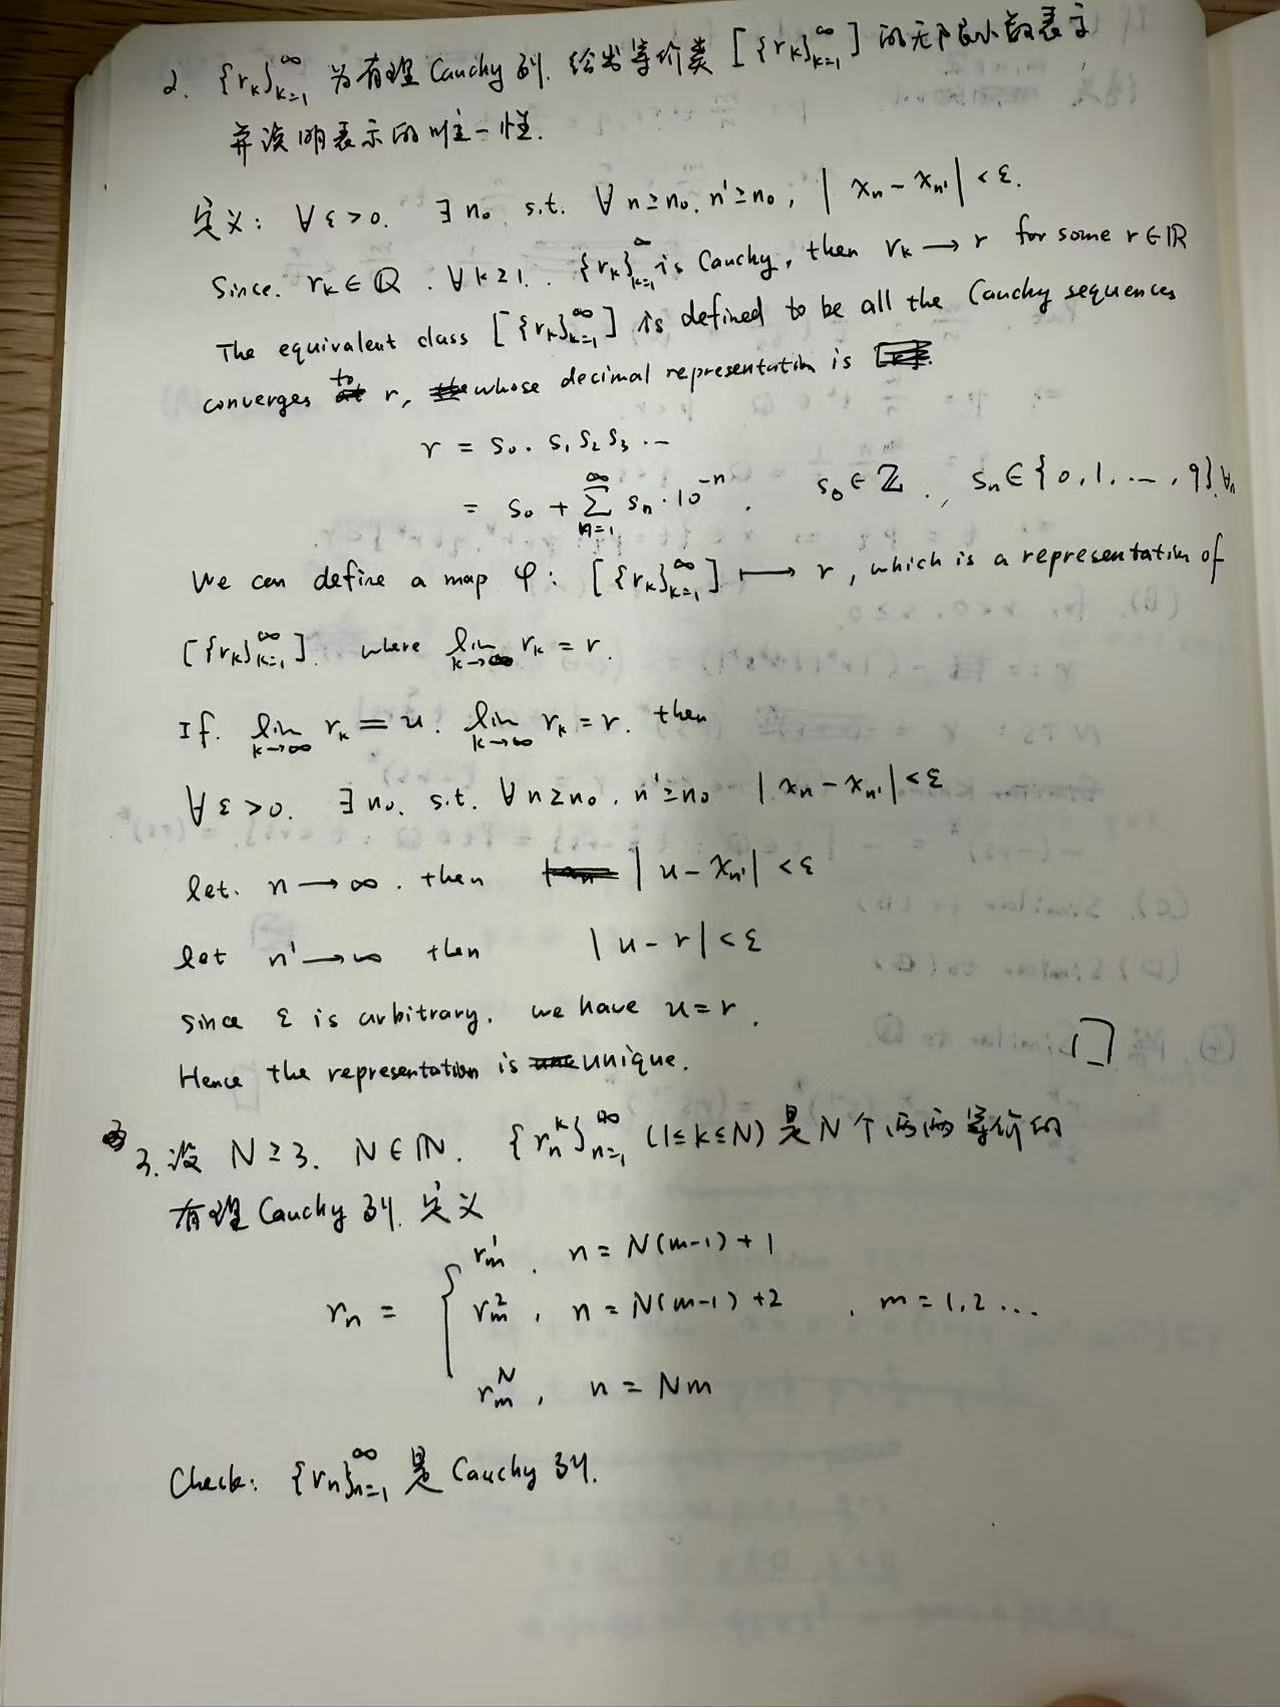 2. {r_k}_{k=1}^∞ 为有理 Cauchy 列. 给出等价类 [{r_k}_{k=1}^∞] 的无限小数表示
并说明表示的唯一性.
定义: ∀ε>0. ∃n₀ s.t. ∀n≥n₀, n'≥n₀, |x_n - x_{n'}| < ε.
Since. r_k ∈ ℚ. ∀k≥1. {r_k}_{k=1}^∞ is Cauchy, then r_k → r for some r∈ℝ
The equivalent class [{r_k}_{k=1}^∞] is defined to be all the Cauchy sequences
converges to r, whose decimal representation is
r = s₀. s₁ s₂ s₃ ...
= s₀ + Σ_{n=1}^∞ s_n · 10^{-n}. s₀ ∈ ℤ., s_n ∈ {0, 1, ..., 9}, ∀n
We can define a map φ: [{r_k}_{k=1}^∞] ↦ r, which is a representation of
[{r_k}_{k=1}^∞]. where lim_{k→∞} r_k = r.
If. lim_{k→∞} r_k = u. lim_{k→∞} r_k = r. then
∀ε>0. ∃n₀. s.t. ∀n≥n₀. n'≥n₀ |x_n - x_{n'}| < ε
let. n → ∞. then |u - x_{n'}| < ε
let n' → ∞ then |u - r| < ε
since ε is arbitrary. we have u = r.
Hence the representation is unique. □
3. 设 N≥3. N∈ℕ. {r_n^k}_{n=1}^∞ (1≤k≤N) 是 N 个两两等价的
有理 Cauchy 列. 定义
r_n = { r_m^1, n = N(m-1)+1
r_m^2, n = N(m-1)+2, m = 1,2 ...
r_m^N, n = Nm
Check: {r_n}_{n=1}^∞ 是 Cauchy 列.